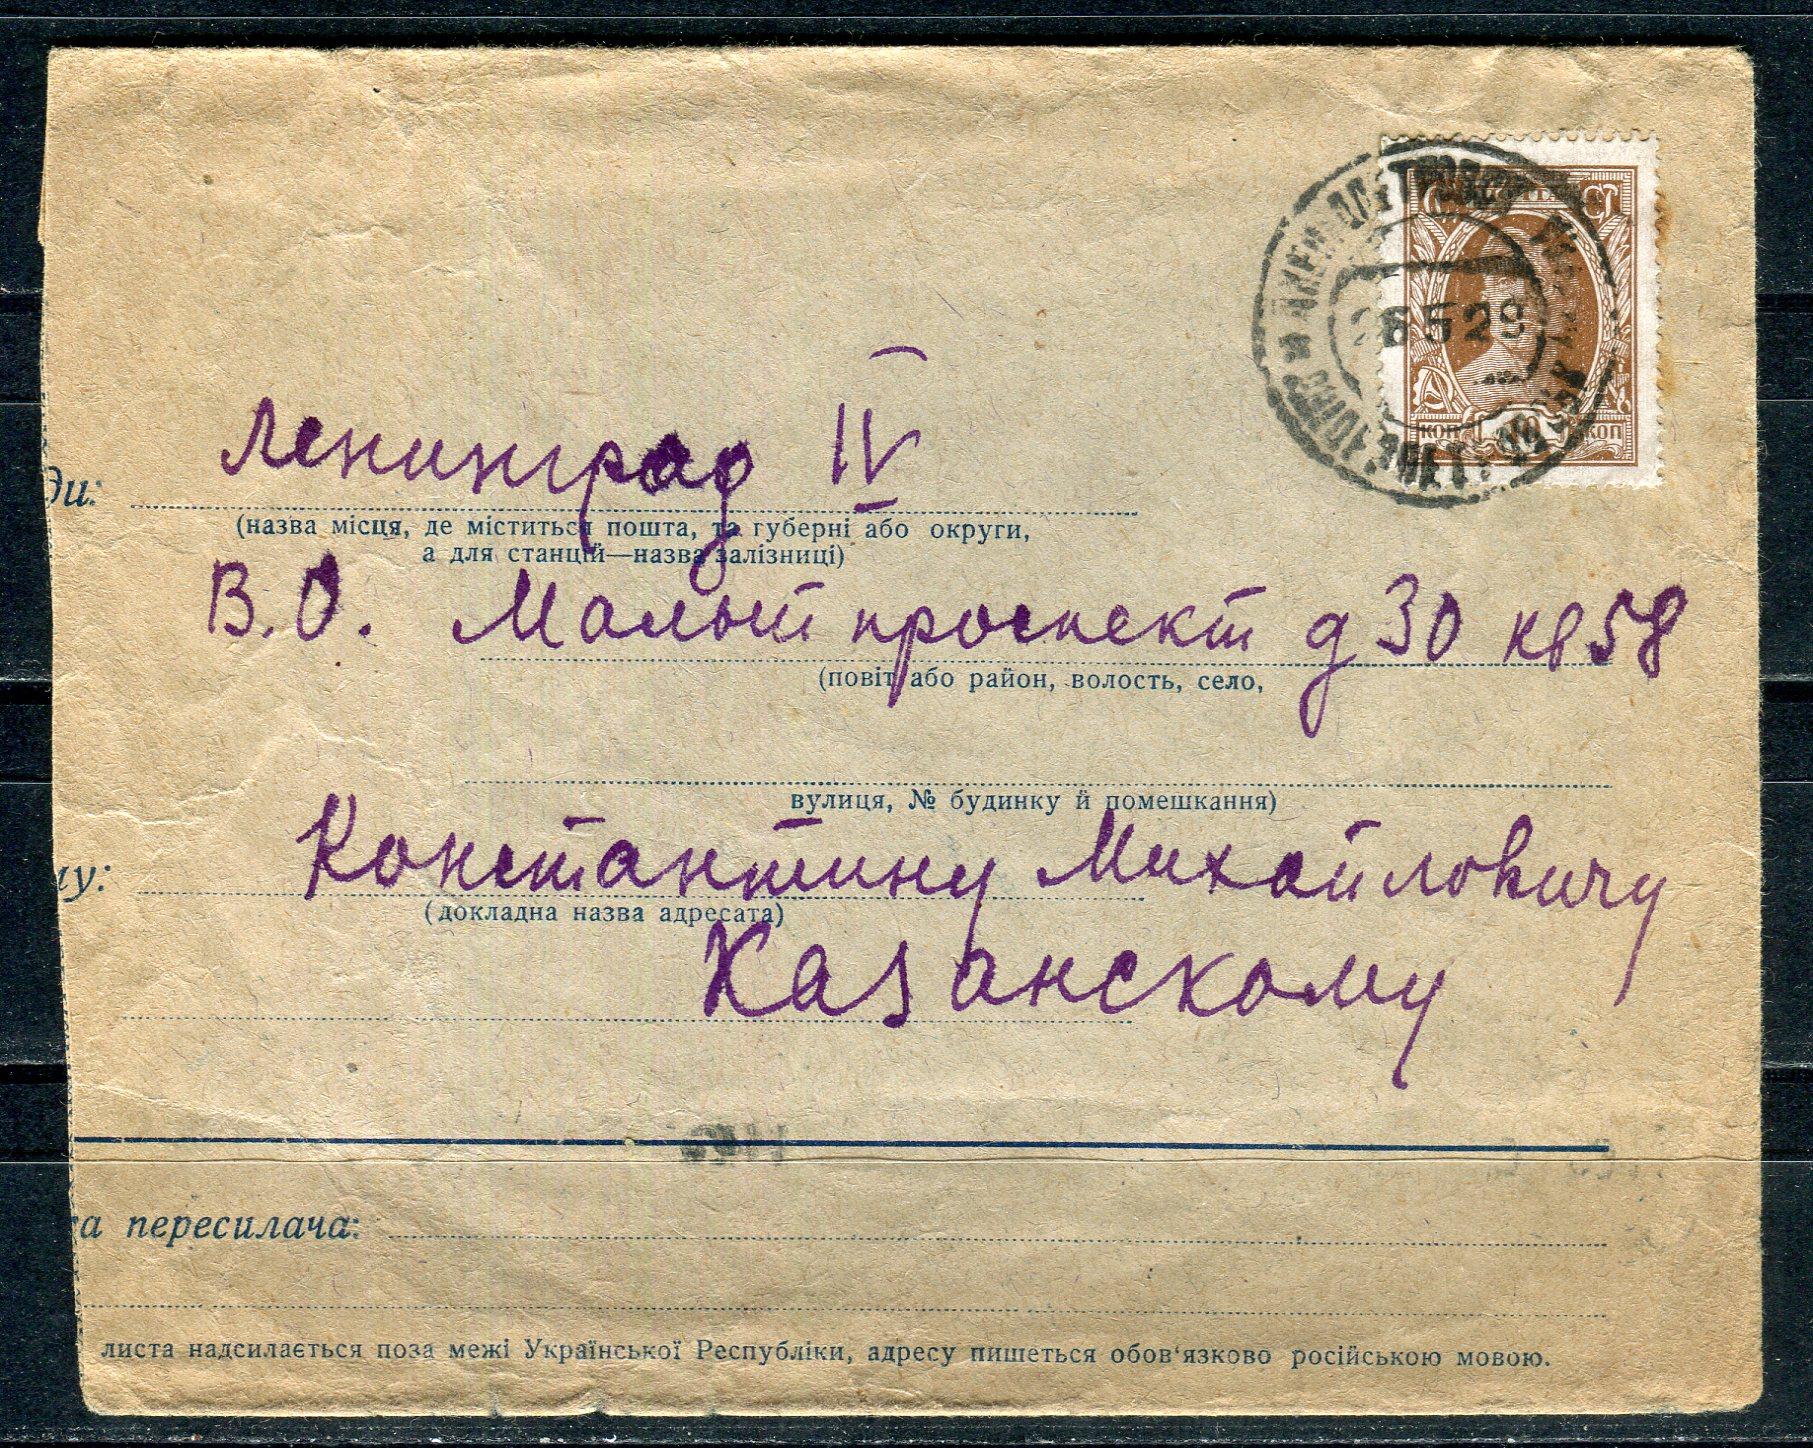 Ленинград IV
ди:
(назва місця, де міститься пошта, та губерні або округи,
а для станцій—назва залізниці)
В.О. Малый проспект д 30 кв 58
(повіт або район, волость, село,
вулиця, № будинку й помешкання)
Константину Михайловичу
му:
(докладна назва адресата)
Казанскому
са пересилача:
листа надсилається поза межі Української Республіки, адресу пишеться обов'язково російською мовою.
КОП 10 КОП